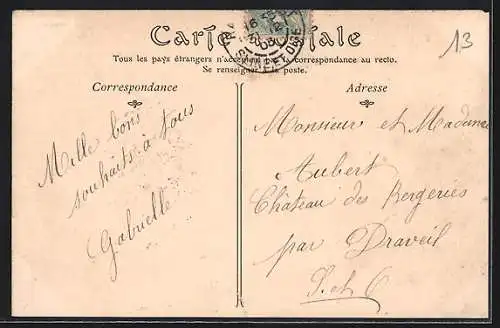 Carte Postale
13
Tous les pays étrangers n'acceptent pas la correspondance au recto.
Se renseigner à la poste.
Correspondance
Adresse
Mille bons
souhaits à tous
Gabrielle
Monsieur et Madame
Aubert
Château des Bergeries
par Draveil
S. et O
SEINE ET OISE